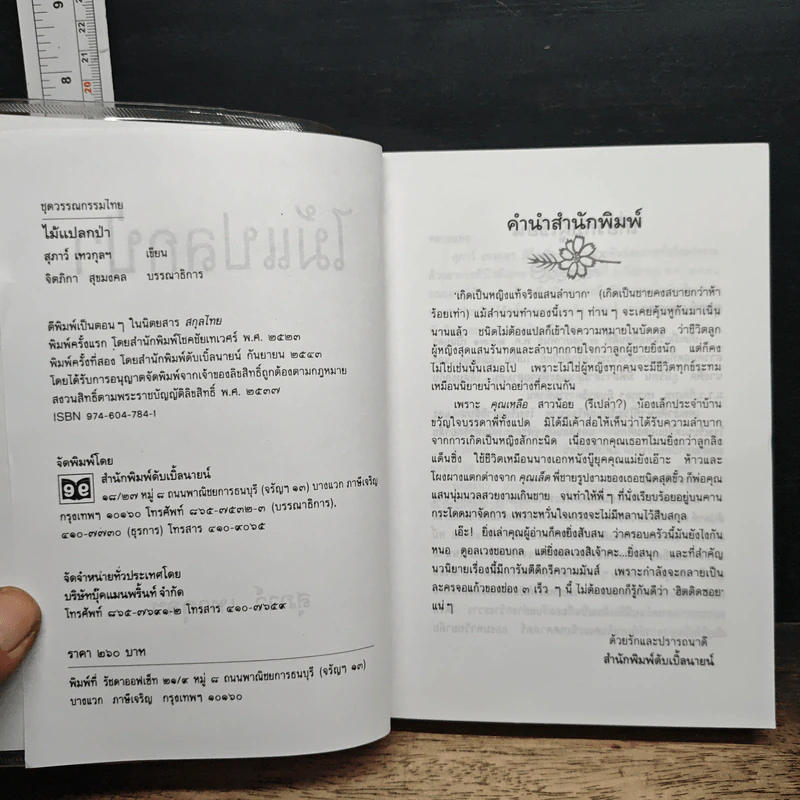 9
8
22
21
20
ชุดวรรณกรรมไทย
ไม้แปลกป่า
สุภาว์ เทวกุลฯ เขียน
จิตภิกา สุขมงคล บรรณาธิการ
ตีพิมพ์เป็นตอนๆ ในนิตยสาร สกุลไทย
พิมพ์ครั้งแรก โดยสำนักพิมพ์โชคชัยเทเวศร์ พ.ศ. ๒๕๒๓
พิมพ์ครั้งที่สอง โดยสำนักพิมพ์ดับเบิ้ลนายน์ กันยายน ๒๕๔๓
โดยได้รับการอนุญาตจัดพิมพ์จากเจ้าของลิขสิทธิ์ถูกต้องตามกฎหมาย
สงวนสิทธิ์ตามพระราชบัญญัติลิขสิทธิ์ พ.ศ. ๒๕๓๗
ISBN 974-604-784-1
จัดพิมพ์โดย
สำนักพิมพ์ดับเบิ้ลนายน์
๑๘/๒๗ หมู่ ๘ ถนนพาณิชยการธนบุรี (จรัญฯ ๑๓) บางแวก ภาษีเจริญ
กรุงเทพฯ ๑๐๑๖๐ โทรศัพท์ ๘๖๕-๗๕๓๒-๓ (บรรณาธิการ),
๔๑๐-๗๗๓๐ (ธุรการ) โทรสาร ๔๑๐-๙๐๖๕
จัดจำหน่ายทั่วประเทศโดย
บริษัทบุ๊คแมนพริ้นท์ จำกัด
โทรศัพท์ ๘๖๕-๗๖๙๑-๒ โทรสาร ๔๑๐-๗๖๕๙
ราคา ๒๖๐ บาท
พิมพ์ที่ รัชดาออฟเซ็ท ๒๑/๙ หมู่ ๘ ถนนพาณิชยการธนบุรี (จรัญฯ ๑๓)
บางแวก ภาษีเจริญ กรุงเทพฯ ๑๐๑๖๐
คำนำสำนักพิมพ์
'เกิดเป็นหญิงแท้จริงแสนลำบาก' (เกิดเป็นชายคงสบายกว่าห้า
ร้อยเท่า) แม้สำนวนทำนองนี้เราๆ ท่านๆ จะเคยคุ้นหูกันมาเนิ่น
นานแล้ว ชนิดไม่ต้องแปลก็เข้าใจความหมายในบัดดล ว่าชีวิตลูก
ผู้หญิงสุดแสนรันทดและลำบากกายใจกว่าลูกผู้ชายยิ่งนัก แต่ก็คง
ไม่ใช่เช่นนั้นเสมอไป เพราะไม่ใช่ผู้หญิงทุกคนจะมีชีวิตทุกข์ระทม
เหมือนนิยายน้ำเน่าอย่างที่คะเนกัน
เพราะ คุณเหลือ สาวน้อย (รึเปล่า?) น้องเล็กประจำบ้าน
ขวัญใจบรรดาพี่ทั้งแปด มิได้มีเค้าส่อให้เห็นว่าได้รับความลำบาก
จากการเกิดเป็นหญิงสักกะนิด เนื่องจากคุณเธอทโมนยิ่งกว่าลูกลิง
แด็นซิ่ง ใช้ชีวิตเหมือนนางเอกหนังบู๊ยุคคุณแม่ยังเอ๊าะ ห้าวและ
โผงผางแตกต่างจาก คุณเล็ด พี่ชายรูปงามของเธอชนิดสุดขั้ว ก็พ่อคุณ
แสนนุ่มนวลสวยงามเกินชาย จนทำให้พี่ๆ ที่นั่งเรียบร้อยอยู่บนคาน
กระโดดมาจัดการ เพราะหวั่นใจเกรงจะไม่มีหลานไว้สืบสกุล
เอ๊ะ! ยิ่งเล่าคุณผู้อ่านก็คงยิ่งสับสน ว่าครอบครัวนี้มันยังไงกัน
หนอ ดูอลเวงชอบกล แต่ยิ่งอลเวงสิเจ้าคะ...ยิ่งสนุก และที่สำคัญ
นวนิยายเรื่องนี้มีการันตีดีกรีความมันส์ เพราะกำลังจะกลายเป็น
ละครจอแก้วของช่อง ๓ เร็วๆ นี้ ไม่ต้องบอกก็รู้กันดีว่า 'ฮิตติดซอย'
แน่ๆ
ด้วยรักและปรารถนาดี
สำนักพิมพ์ดับเบิ้ลนายน์